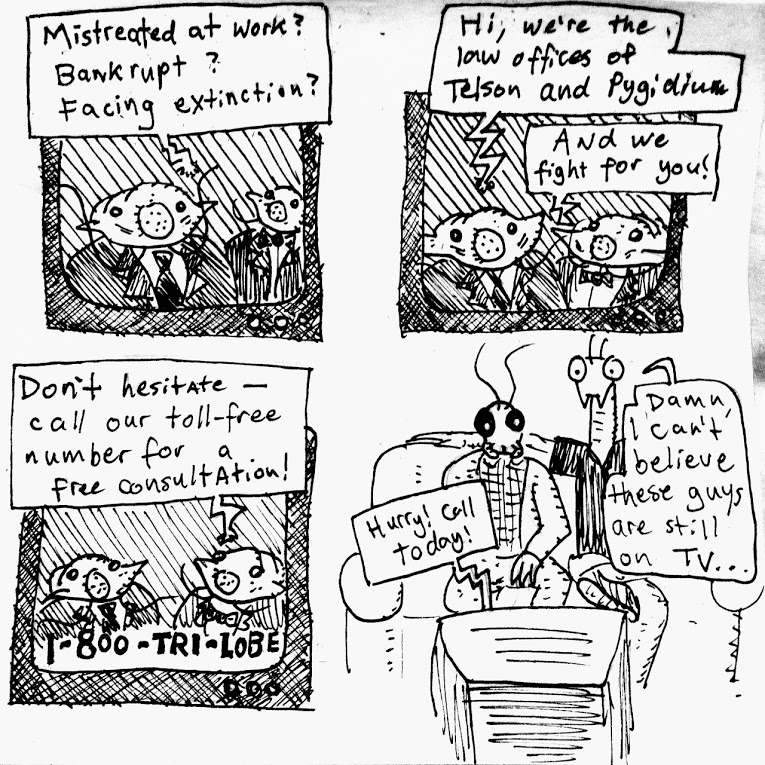 Mistreated at work?
Bankrupt?
Facing extinction?
Hi, we're the
law offices of
Telson and Pygidium
And we
fight for you!
Don't hesitate —
call our toll-free
number for a
free consultation!
1-800-TRI-LOBE
Hurry! Call
today!
Damn,
I can't
believe
these guys
are still
on TV...